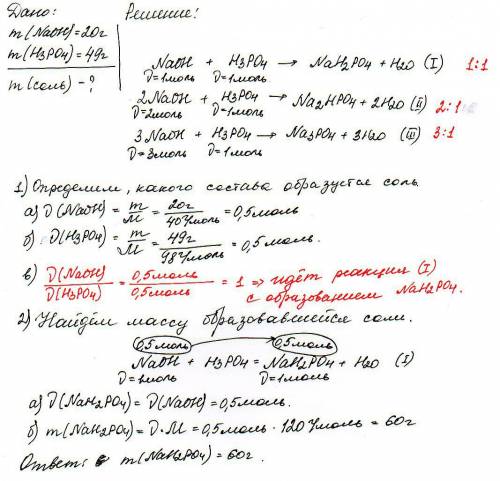 Дано:
m(NaOH)=20г
m(H3PO4)=49г
m(соль)-?
Решение:
NaOH + H3PO4 → NaH2PO4 + H2O (I) 1:1
D=1моль D=1моль.
2NaOH + H3PO4 → Na2HPO4 + 2H2O (II) 2:1
D=2моль D=1моль
3NaOH + H3PO4 → Na3PO4 + 3H2O (III) 3:1
D=3моль D=1моль
1) Определим, какого состава образуется соль.
а) D(NaOH) = m/M = 20г/40г/моль = 0,5моль
б) D(H3PO4) = m/M = 49г/98г/моль = 0,5моль.
в) D(NaOH)/D(H3PO4) = 0,5моль/0,5моль = 1 => идёт реакция (I)
с образованием NaH2PO4.
2) Найдём массу образовавшейся соли.
0,5моль 0,5моль
NaOH + H3PO4 = NaH2PO4 + H2O (I)
D=1моль D=1моль
а) D(NaH2PO4) = D(NaOH) = 0,5моль.
б) m(NaH2PO4) = D·M = 0,5моль · 120г/моль = 60г
Ответ: m(NaH2PO4) = 60г.